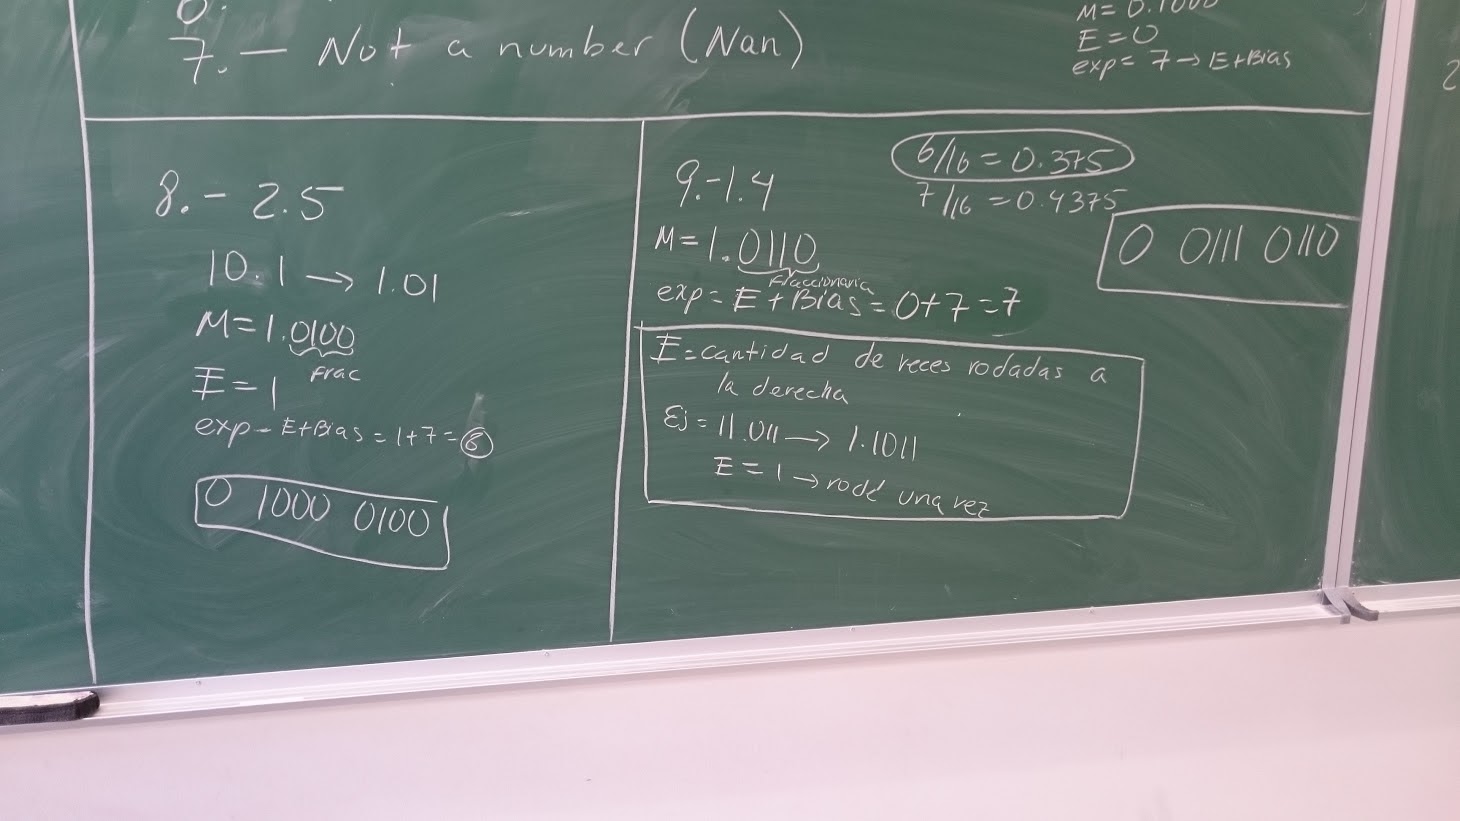 7.- Not a number (Nan)
M= 0.1000
E=0
exp= 7→ E+Bias
8.- 2.5
10.1 → 1.01
M=1.0100
frac
E=1
exp= E+Bias=1+7=8
0 1000 0100
9.-1.4
6/16=0.375
7/16=0.4375
M=1.0110
Fraccionaria
exp= E+Bias=0+7=7
0 0111 0110
E=cantidad de veces rodadas a
la derecha
Ej= 11.011→ 1.1011
E=1→rodé una vez